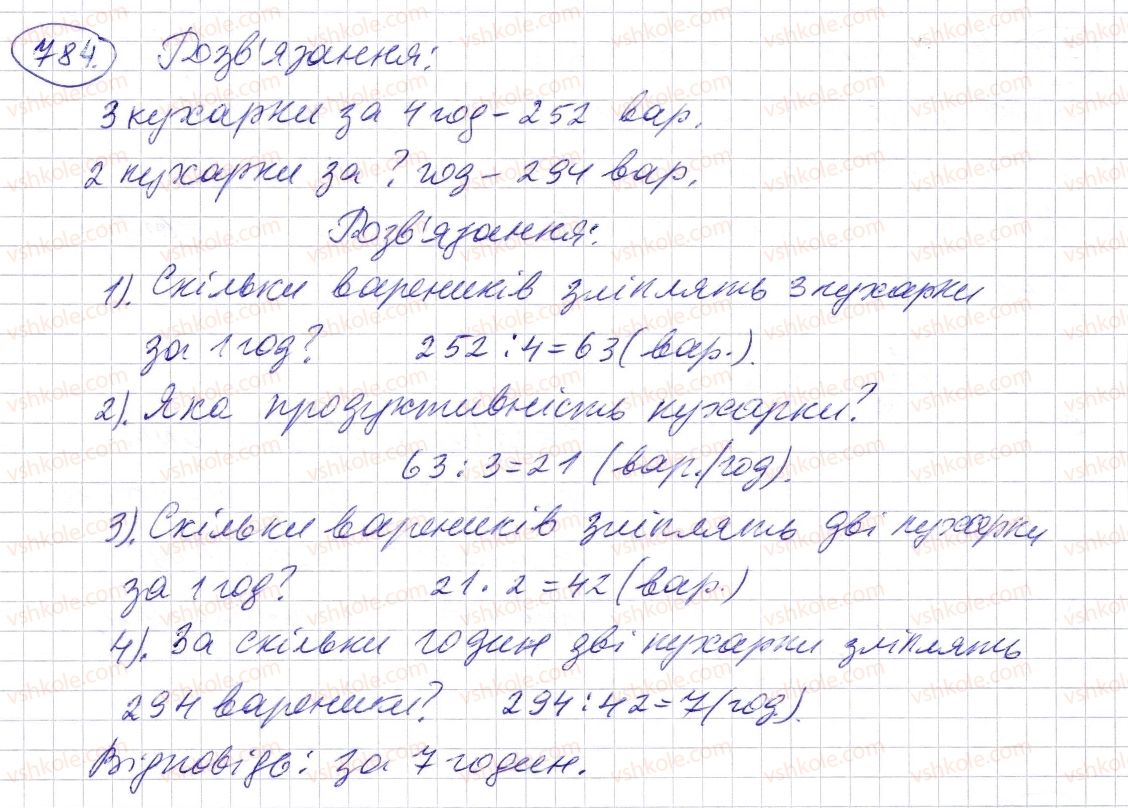 784. Розв'язання:
3 кухарки за 4 год - 252 вар.
2 кухарки за ? год - 294 вар.
Розв'язання:
1). Скільки вареників зліплять 3 кухарки
за 1 год? 252 : 4 = 63 (вар.).
2). Яка продуктивність кухарки?
63 : 3 = 21 (вар./год).
3). Скільки вареників зліплять дві кухарки
за 1 год? 21 · 2 = 42 (вар.)
4). За скільки годин дві кухарки зліплять
294 вареники? 294 : 42 = 7 (год).
Відповідь: за 7 годин.